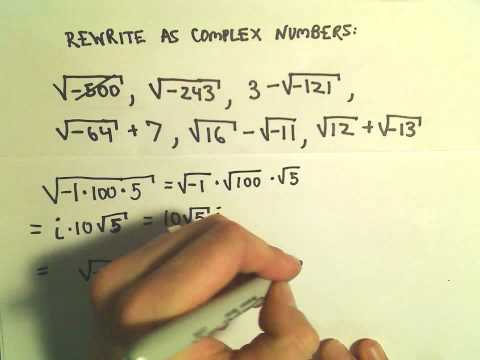 REWRITE AS COMPLEX NUMBERS:
√-500, √-243, 3 - √-121,
√-64 + 7, √16 - √-11, √12 + √-13
√-1·100·5 = √-1 · √100 · √5
= i·10√5 = 10√5 i
=